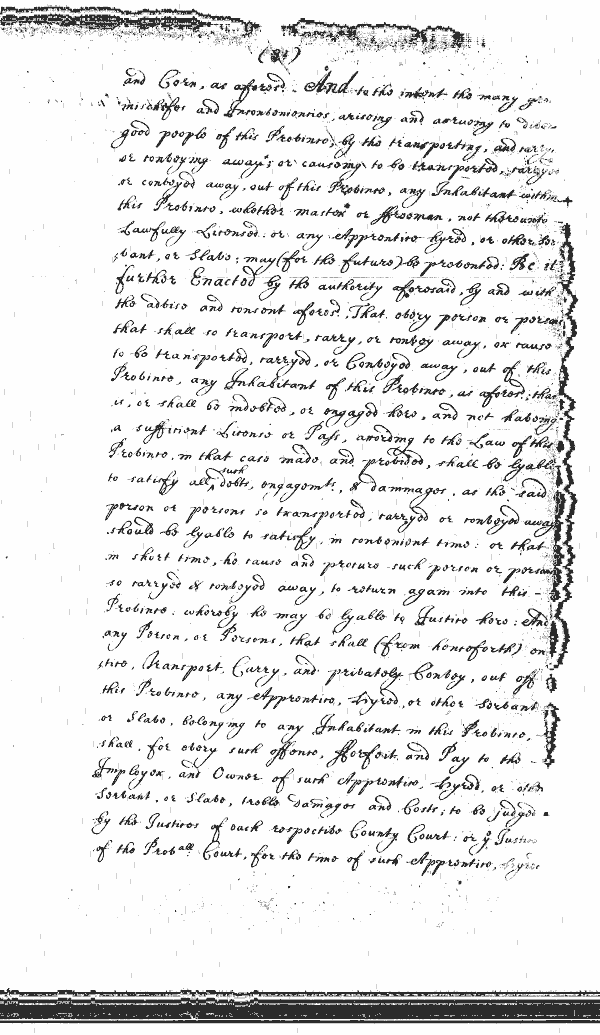 (81)
and Corn, as afores.d. And to the intent the many gre
mischefes and Inconveniencies, arising and acrueing to diver
good people of this Province, by the transporting, and carry
or conveying away; or causeing to be transported, carryed
or conveyed away, out of this Province, any Inhabitant within
this Province, whether master or ffreeman, not thereunto
Lawfully Licensed: or any Apprentice hyred, or other Ser
vant, or Slave; may (for the future) be prevented: Be it
further Enacted by the authority aforesaid, by and with
the advise and consent afores.d, That every person or person
that shall so transport, carry, or convey away, or cause
to be transported, carryed, or Conveyed away, out of this
Province, any Inhabitant of this Province, as afores.d; that
is, or shall be indebted, or engaged here, and not haveing
a sufficient License or Pass, according to the Law of this
Province, in that case made and provided, shall be lyable
to satisfy all such debts, engagem.ts, & dammages, as the said
person or persons so transported, carryed or conveyed away
should be lyable to satisfy, in convenient time: or that
in short time, he cause and procure such person or persons
so carryed & conveyed away, to return again into this -
Province: whereby he may be lyable to Justice here: And
any Person, or Persons, that shall (from henceforth) en
tice, Transport, Carry, and privately Convey, out off
this Province, any Apprentice, Hyred, or other Servant
or Slave, belonging to any Inhabitant in this Province, -
shall, for every such offence, fforfeit and Pay to the -
Imployer, and Owner of such Apprentice, Hyred, or othe
Servant, or Slave, treble Damages and Costs; to be judged
by the Justices of each respective County Court: or y.e Justice
of the Prov.all Court, for the time of such Apprentice, hyred